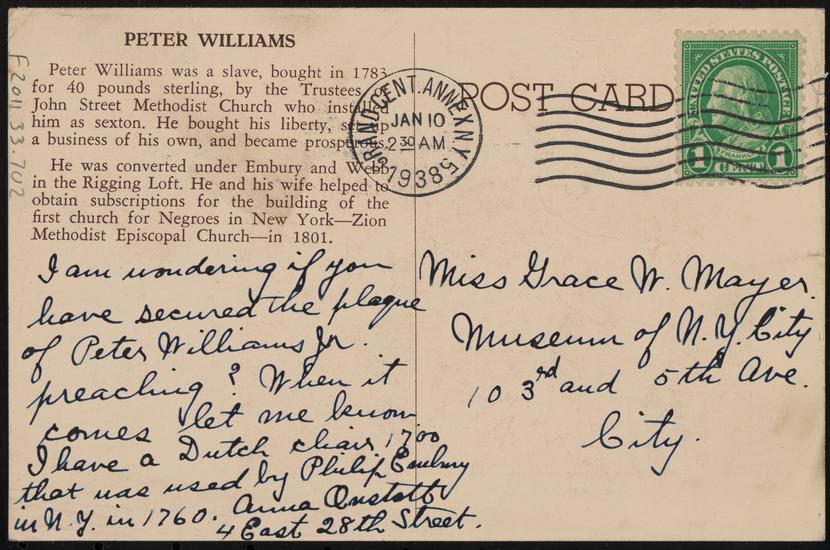 PETER WILLIAMS
Peter Williams was a slave, bought in 1783
for 40 pounds sterling, by the Trustees of
John Street Methodist Church who installed
him as sexton. He bought his liberty, set up
a business of his own, and became prosperous.
He was converted under Embury and Webb
in the Rigging Loft. He and his wife helped to
obtain subscriptions for the building of the
first church for Negroes in New York—Zion
Methodist Episcopal Church—in 1801.
I am wondering if you
have secured the plaque
of Peter Williams Jr.
preaching? When it
comes let me know
I have a Dutch chair 1700
that was used by Philip Embury
in N.Y. in 1760. Anna Onstott
4 East 28th Street.
F2011.33.702
POST CARD
GRAND CENT. ANNEX N.Y.
JAN 10
2 30 AM
1938
5
UNITED STATES POSTAGE
FRANKLIN
1 CENT 1
Miss Grace W. Mayer.
Museum of N.Y. City
103rd and 5th Ave.
City.